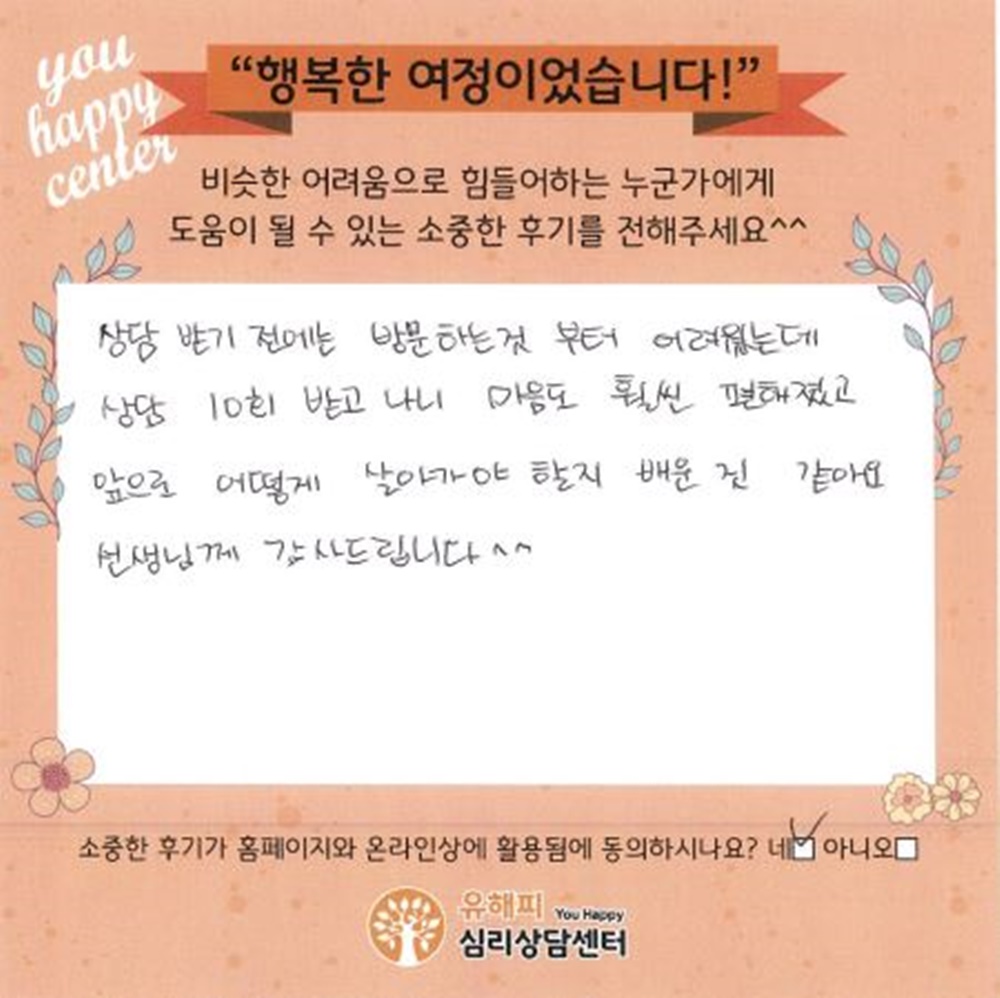 you
happy
center
“행복한 여정이었습니다!”
비슷한 어려움으로 힘들어하는 누군가에게
도움이 될 수 있는 소중한 후기를 전해주세요^^
상담 받기 전에는 방문하는것 부터 어려웠는데
상담 10회 받고 나니 마음도 훨씬 편해졌고
앞으로 어떻게 살아가야 할지 배운 것 같아요
선생님께 감사드립니다^^
소중한 후기가 홈페이지와 온라인상에 활용됨에 동의하시나요? 네 아니오
유해피 You Happy
심리상담센터